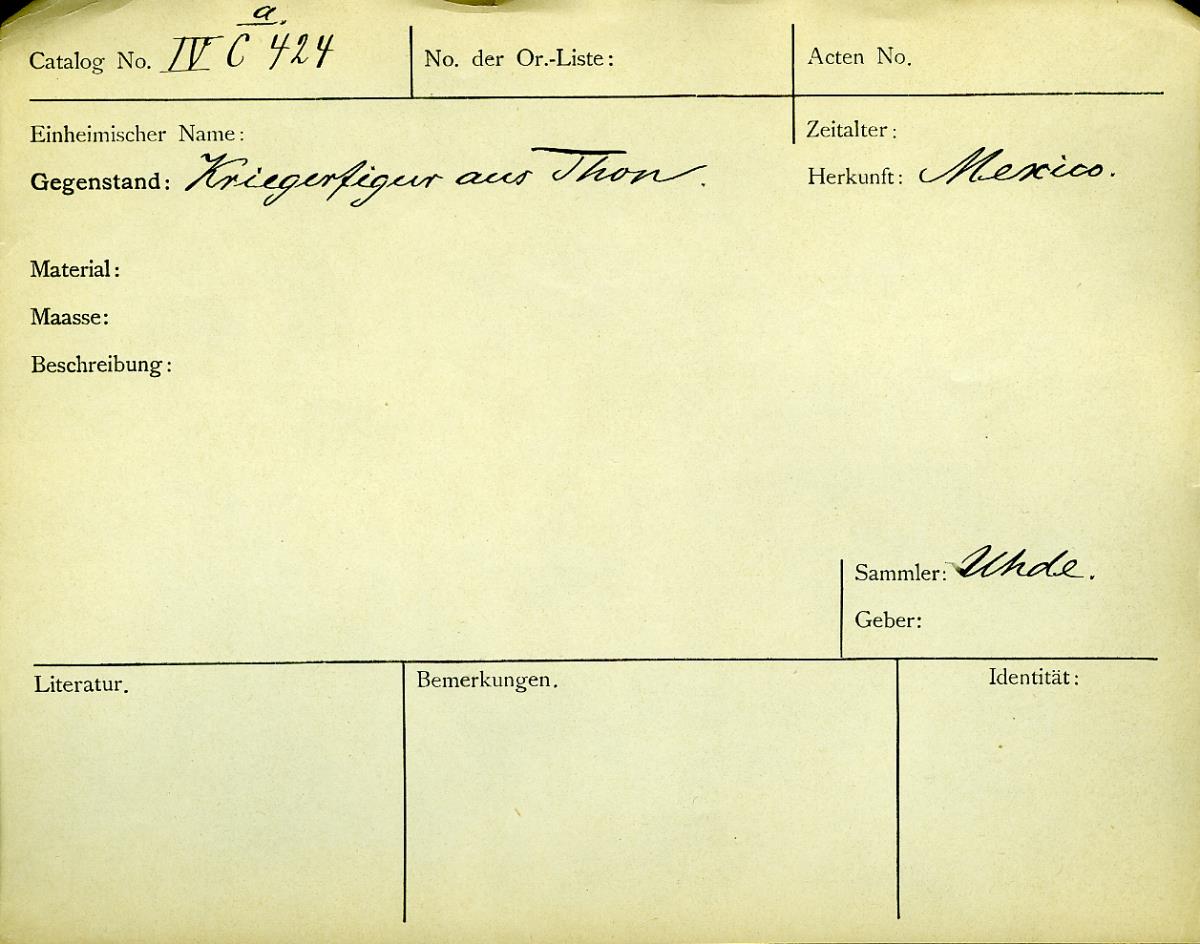 a.
Catalog No. IV C 424
No. der Or.-Liste:
Acten No.
Einheimischer Name:
Zeitalter:
Gegenstand: Kriegerfigur aus Thon.
Herkunft: Mexico.
Material:
Maasse:
Beschreibung:
Sammler: Uhde.
Geber:
Literatur.
Bemerkungen.
Identität: